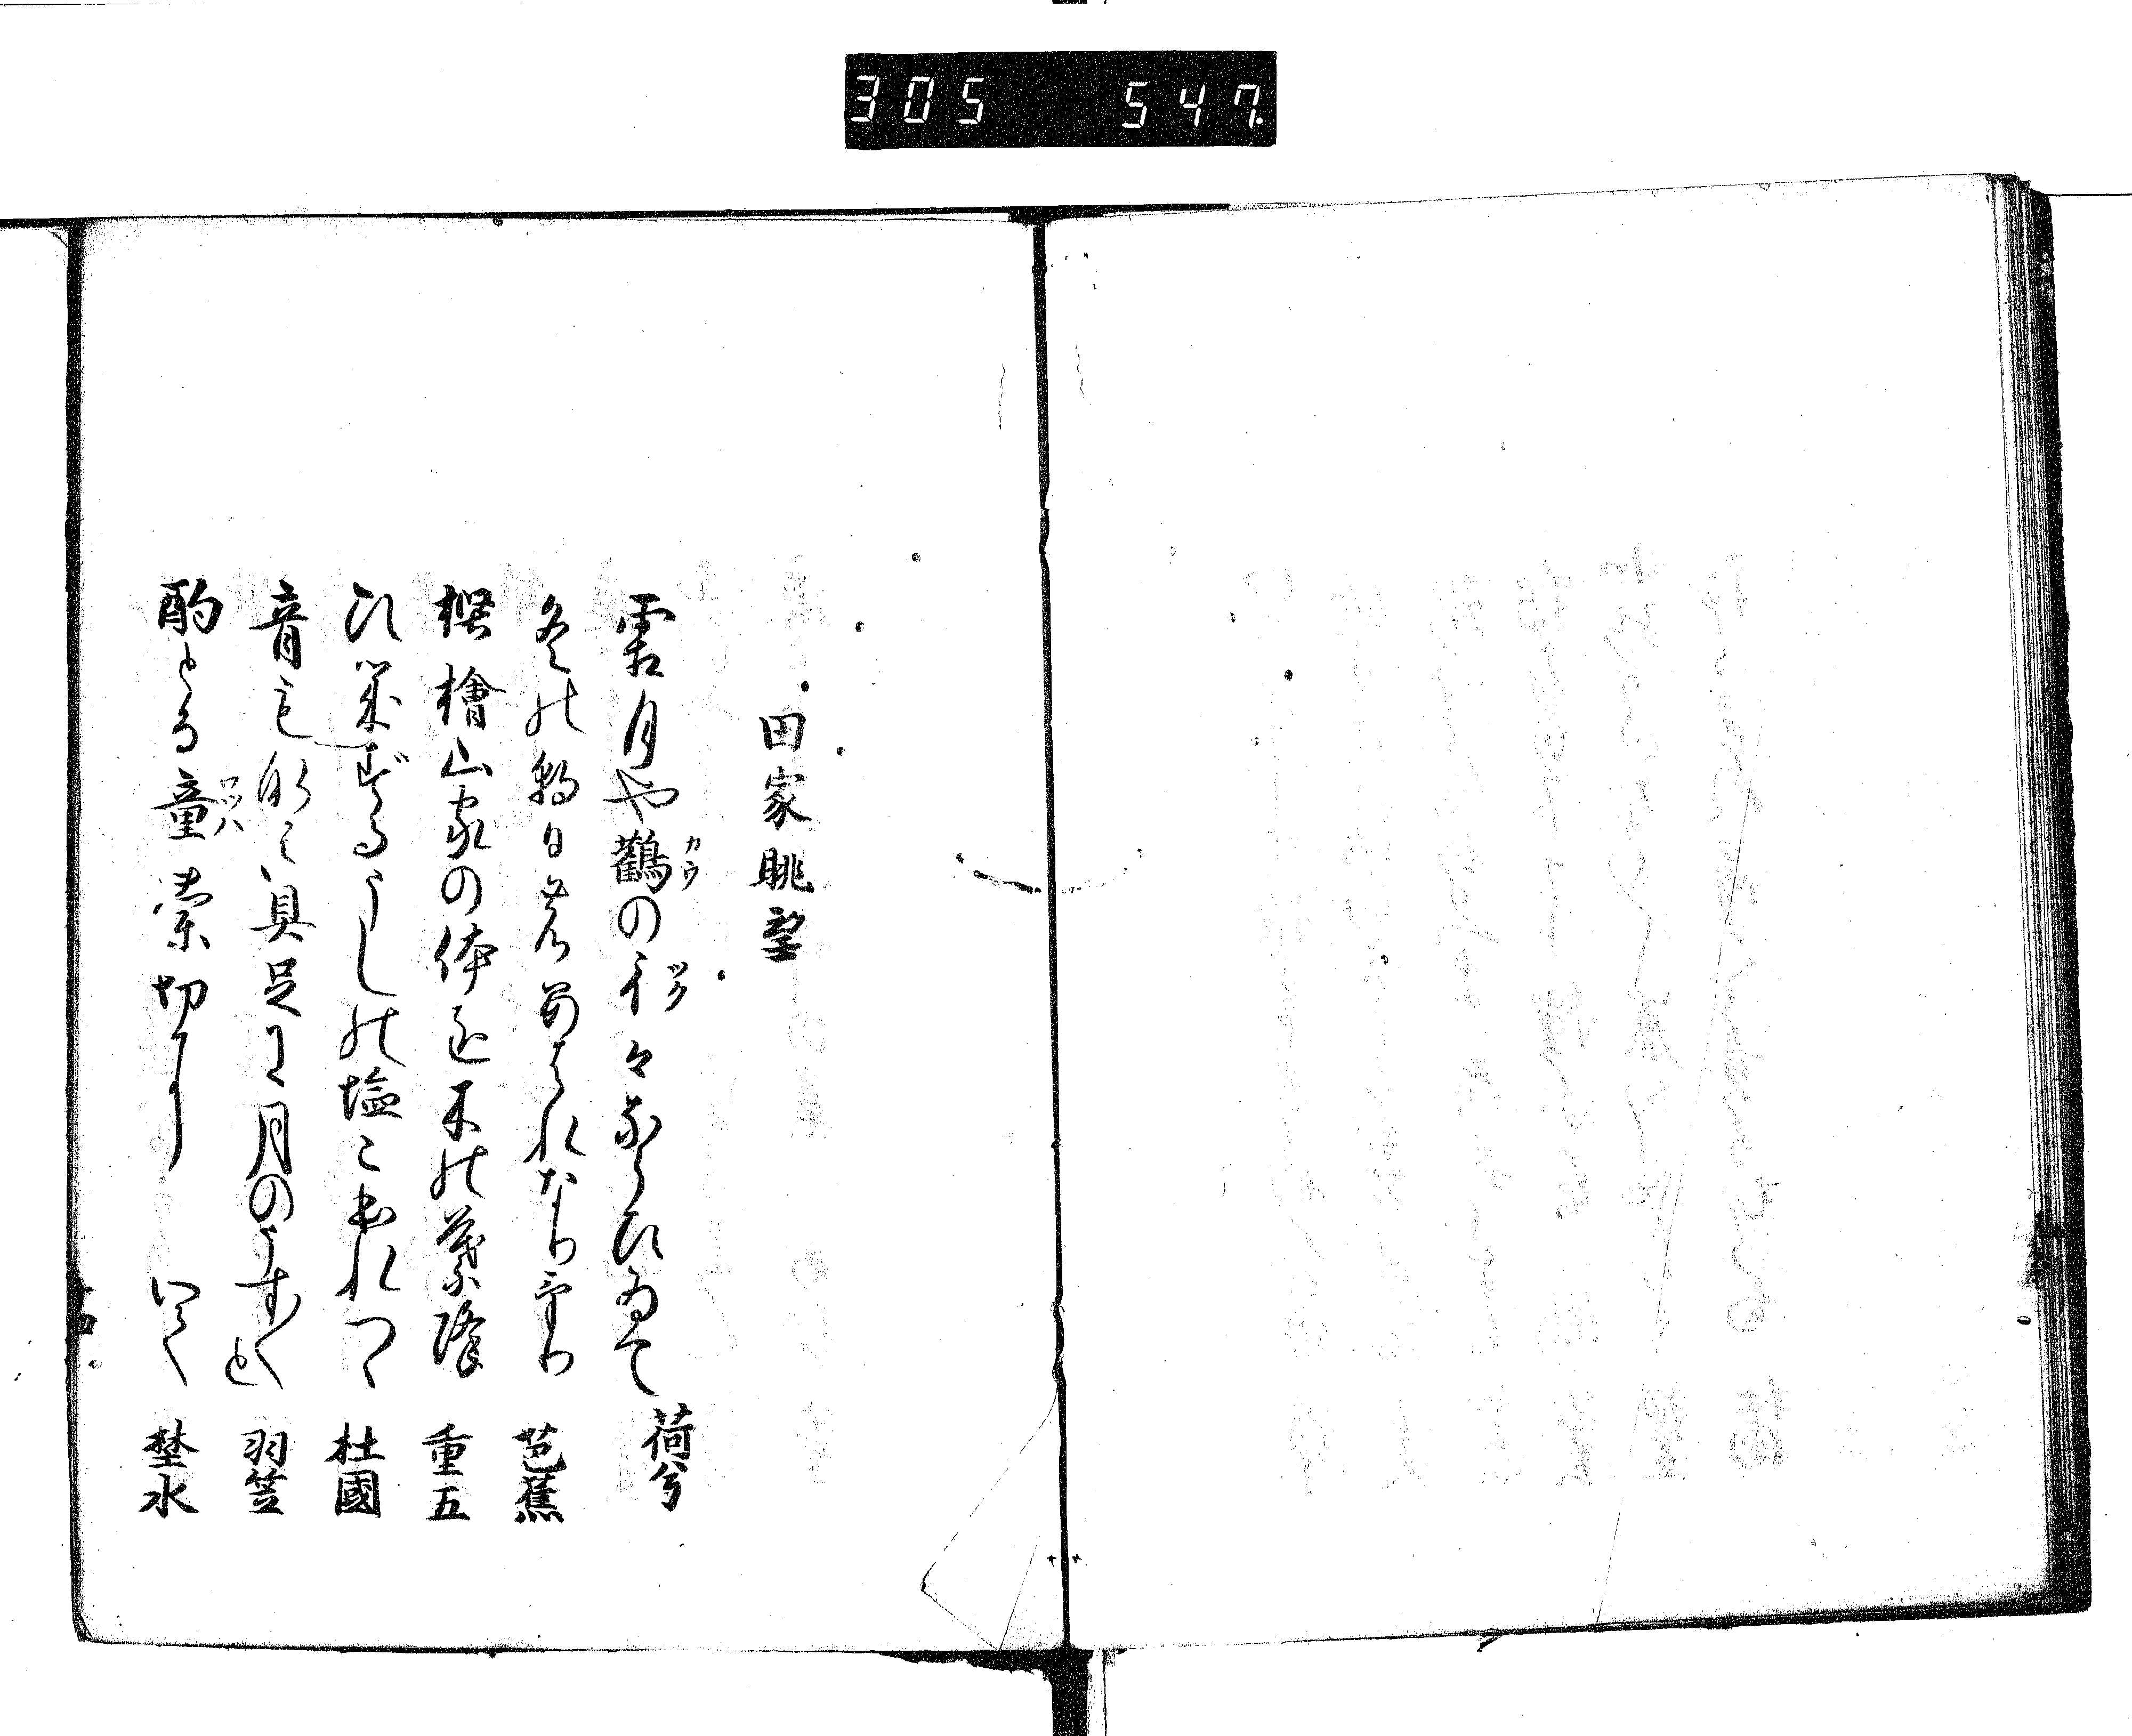 305 547
田家眺望
霜月や鸛の彳々ならびゐて 荷兮
カウ
ツク
冬の朝日のあはれなりけり 芭蕉
樫檜山家の体を木の葉降 重五
ひきずるうしの塩こぼれつゝ 杜國
音もなき具足に月のうす〱と 羽笠
酌とる童蘭切にいでゝ 埜水
ワツハ